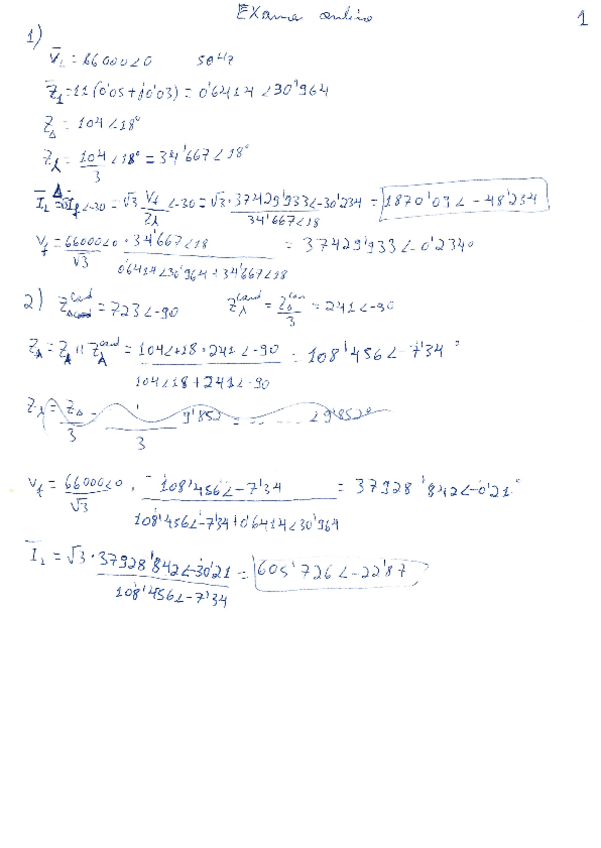 Examen online 1
1)
V̅₁ = 66000∠0 50Hz
Z̅₁ = 11(0'05+j0'03) = 0'6414∠30'964
Z_Δ = 104∠18°
Z_λ = 104/3 ∠18° = 34'667∠18°
I̅_L = I̅_f∠-30 = √3·V_f/Z_λ ∠-30 = √3·37429'933∠-30'234 / 34'667∠18 = 1870'09∠-48'234
V_f = 66000∠0/√3 · 34'667∠18 / 0'6414∠30'964+34'667∠18 = 37429'933∠-0'234°
2) Z_Δ^cond = 723∠-90 Z_λ^cond = Z_Δ^con/3 = 241∠-90
Z_λ = Z_λ || Z_λ^cond = 104∠+18·241∠-90 / 104∠18+241∠-90 = 108'456∠-7'34°
Z_λ = Z_Δ/3 = 9'852 / 3 = ∠9'852°
V_f = 66000∠0/√3 · 108'456∠-7'34 / 108'456∠-7'34+0'6414∠30'964 = 37928'842∠-0'21°
I̅₁ = √3·37928'842∠-30'21 / 108'456∠-7'34 = 605'726∠-22'87